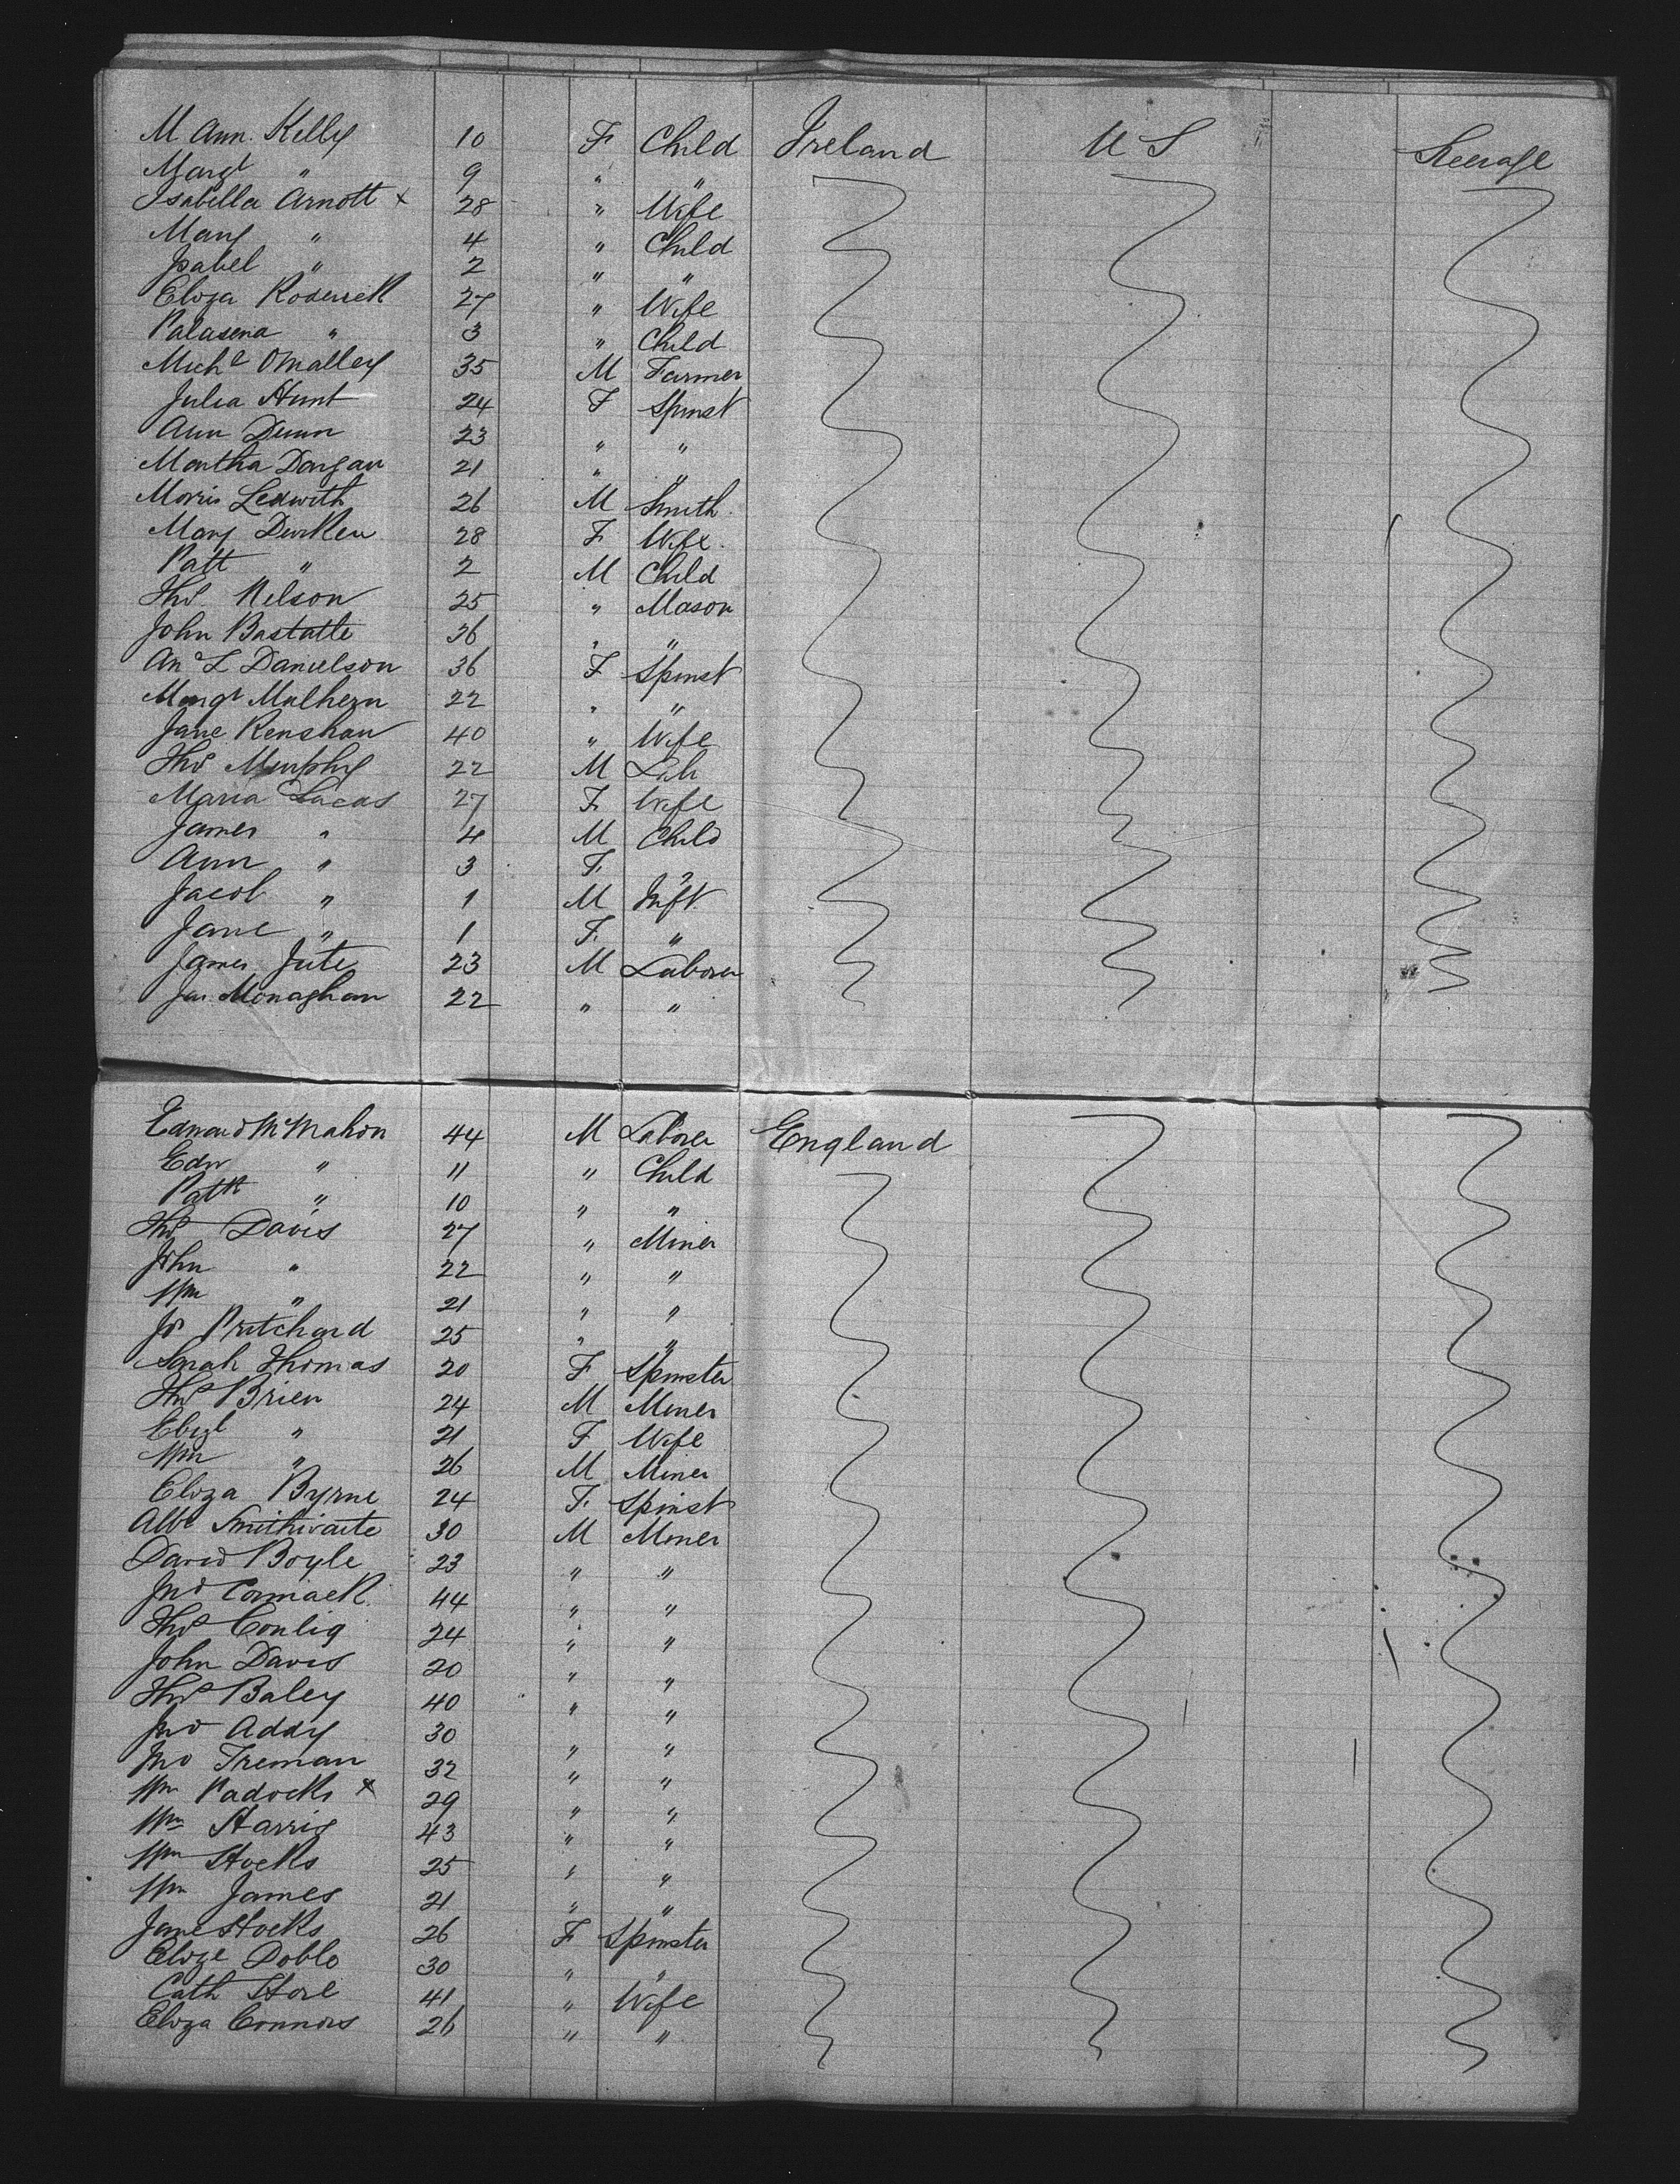 M Ann. Kelly 10 F Child Ireland U S Steerage
Margt " 9 " "
Isabella Arnott x 28 " Wife
Mary " 4 " Child
Isabel " 2 " "
Eliza Roderick 27 " Wife
Palasena " 3 " Child
Michl OMalley 35 M Farmer
Julia Hunt 24 F Spinst
Ann Dunn 23 " "
Martha Dargan 21 " "
Morris Ledwith 26 M Smith
Mary Durken 28 F Wife
Patt " 2 M Child
Thos Nelson 25 " Mason
John Bastatte 36 " "
An L Danielson 36 F Spinst
Margt Mulhern 22 " "
Jane Renshaw 40 " Wife
Thos Murphy 22 M Lab
Maria Lucas 27 F Wife
James " 4 M Child
Ann " 3 F "
Jacob " 1 M Inft
Jane " 1 F "
James Jute 23 M Laborer
Jas. Monaghan 22 " "
Edward McMahon 44 M Laborer England
Edw " 11 " Child
Patk " 10 " "
Thos Davis 27 " Miner
John " 22 " "
Wm " 21 " "
Jos Pritchard 25 " "
Sarah Thomas 20 F Spinster
Thos Brien 24 M Miner
Elizt " 21 F Wife
Wm " 26 M Miner
Eliza Byrne 24 F Spinst
Albt Smithwaite 30 M Miner
David Boyle 23 " "
Jno Cormack 44 " "
Thos Conlig 24 " "
John Davis 20 " "
Thos Baley 40 " "
Jno Addy 30 " "
Jno Treman 32 " "
Wm Padock x 29 " "
Wm Harris 43 " "
Wm Stocks 25 " "
Wm James 21 " "
Jane Stocks 26 F Spinster
Elize Doblo 30 " "
Cath Hore 41 " Wife
Eliza Connors 26 " "